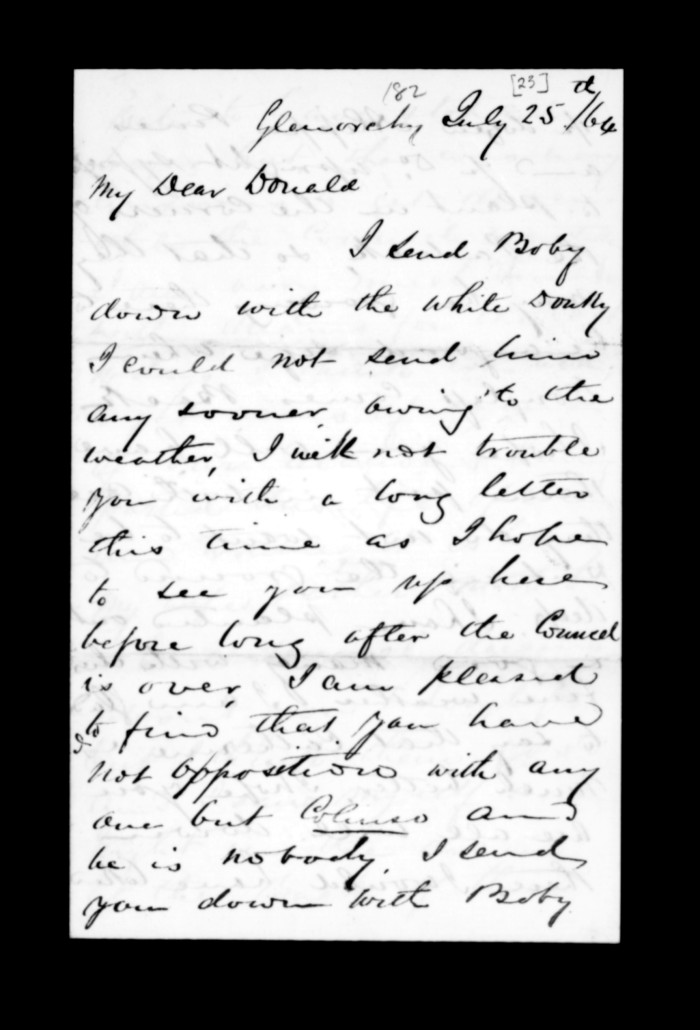 182 [23]
Glenorchy July 25th/64
My Dear Donald
I send Boby
down with the white Donky
I could not send him
any sooner owing to the
weather, I will not trouble
you with a long letter
this time as I hope
to see you up here
before long after the Council
is over, I am pleased
to find that you have
not opposition with any
one but Colenso and
he is nobody, I send
you down with Boby